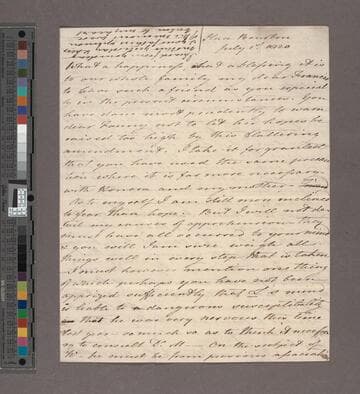 Near Boston
July 1st 1820
What a happiness what a blessing it is
to our whole family my dear Frances
to have such a friend as you especial
ly in the present circumstances. You
have done most prudently to warn
dear Fanny not to let her hopes be
raised too high by this flattering
amendment. I take it for granted
that you have used the same precau
tion where it is far more necessary
with Honora and my mother.
As to myself I am still more inclined
to fear than hope. But I will not de
tail my causes of apprehension. They
must have all occurred to your mind
& you will I am sure weigh all
things well in every step that is taken
I must however mention one thing
of which perhaps you have not been
apprized sufficiently that L's mind
is liable to a dangerous susceptibility
that he was very nervous this time
last year so much so as to think it necessa
ry to consult Dr. M— On the subject of
W— he must be from previous associati